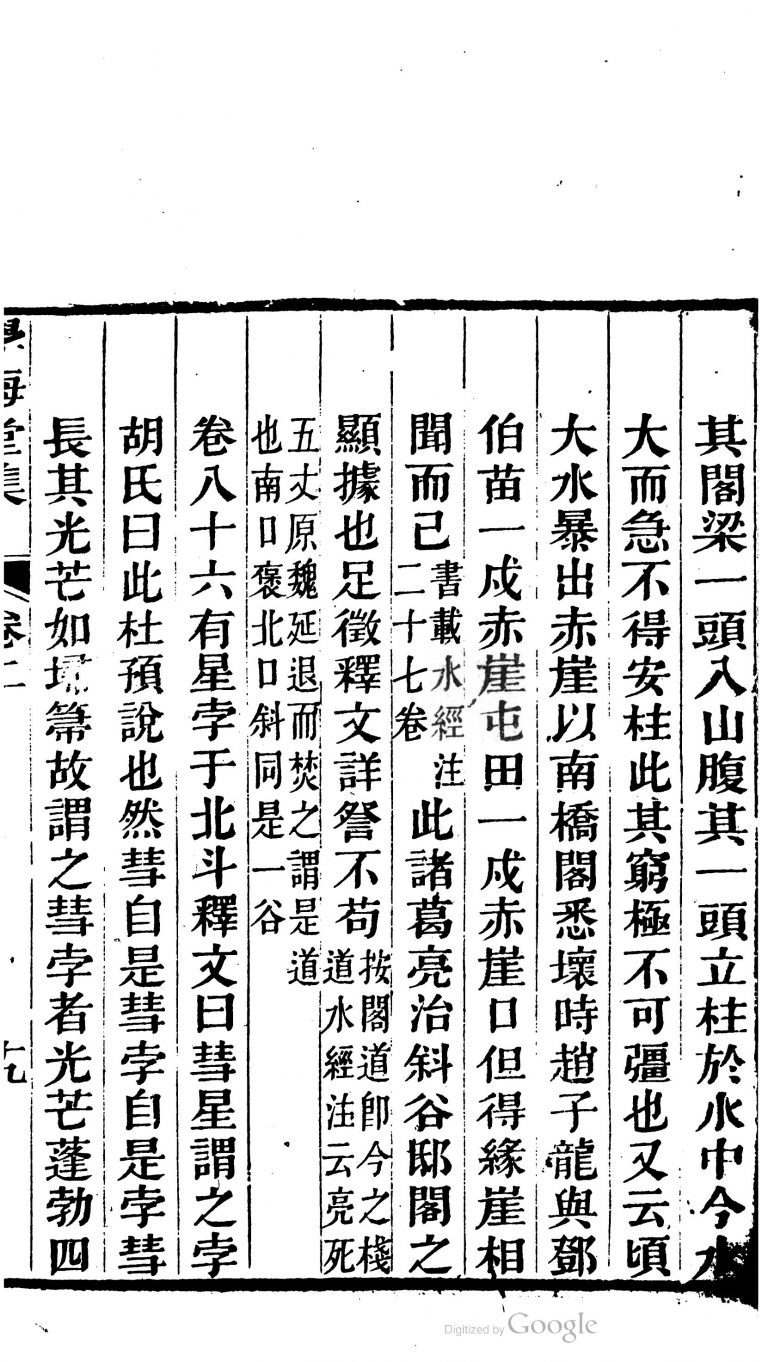 其閣梁一頭入山腹其一頭立柱於水中今水
大而急不得安柱此其窮極不可彊也又云頃
大水暴出赤崖以南橋閣悉壞時趙子龍與鄧
伯苗一戍赤崖屯田一戍赤崖口但得緣崖相
聞而已書載水經注二十七卷此諸葛亮治斜谷邸閣之
顯據也足徵釋文詳詧不苟按閣道卽今之棧道水經注云亮死
五丈原魏延退而焚之謂是道
也南口褒北口斜同是一谷
卷八十六有星孛于北斗釋文曰彗星謂之孛
胡氏曰此杜預說也然彗自是彗孛自是孛彗
長其光芒如埽箒故謂之彗孛者光芒蓬勃四
學海堂集
卷二
十九
Digitized by Google